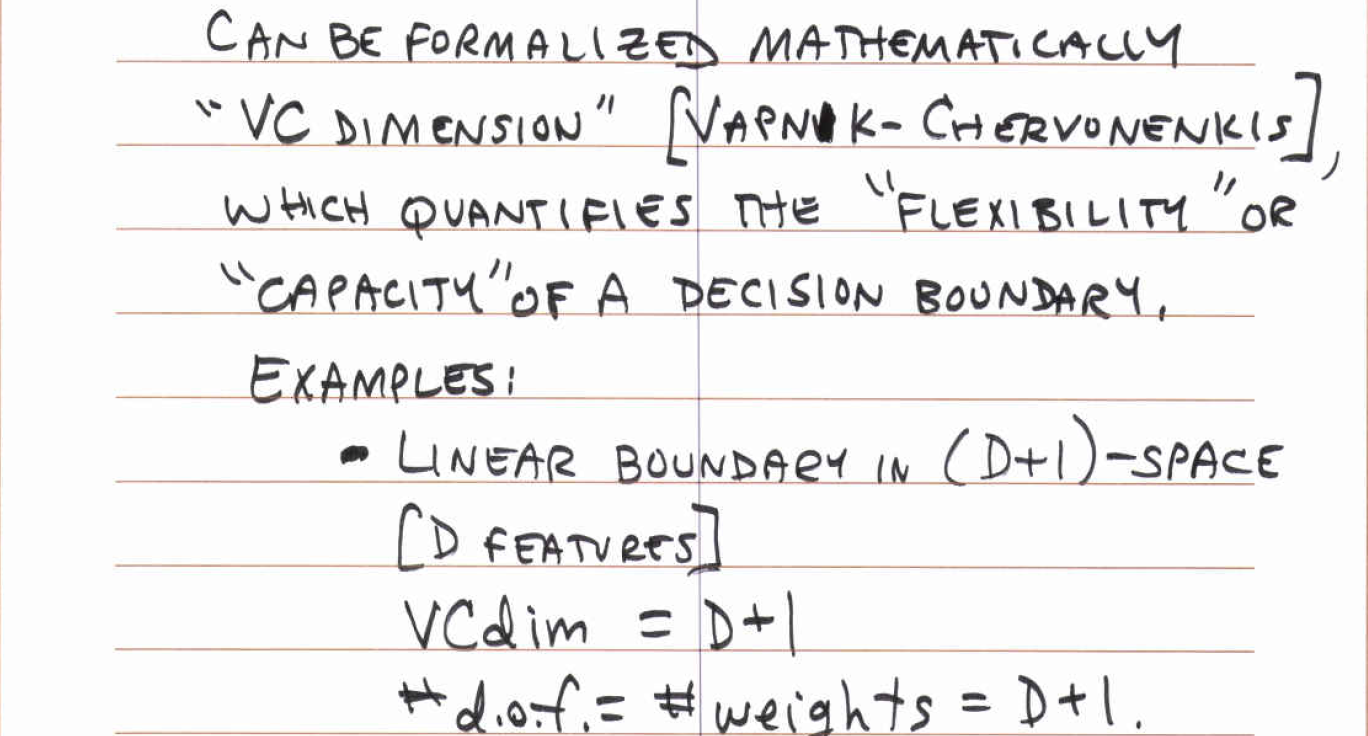 CAN BE FORMALIZED MATHEMATICALLY
"VC DIMENSION" [VAPNIK-CHERVONENKIS],
WHICH QUANTIFIES THE "FLEXIBILITY" OR
"CAPACITY" OF A DECISION BOUNDARY.
EXAMPLES:
• LINEAR BOUNDARY IN (D+1)-SPACE
[D FEATURES]
VCdim = D+1
# d.o.f. = # weights = D+1.